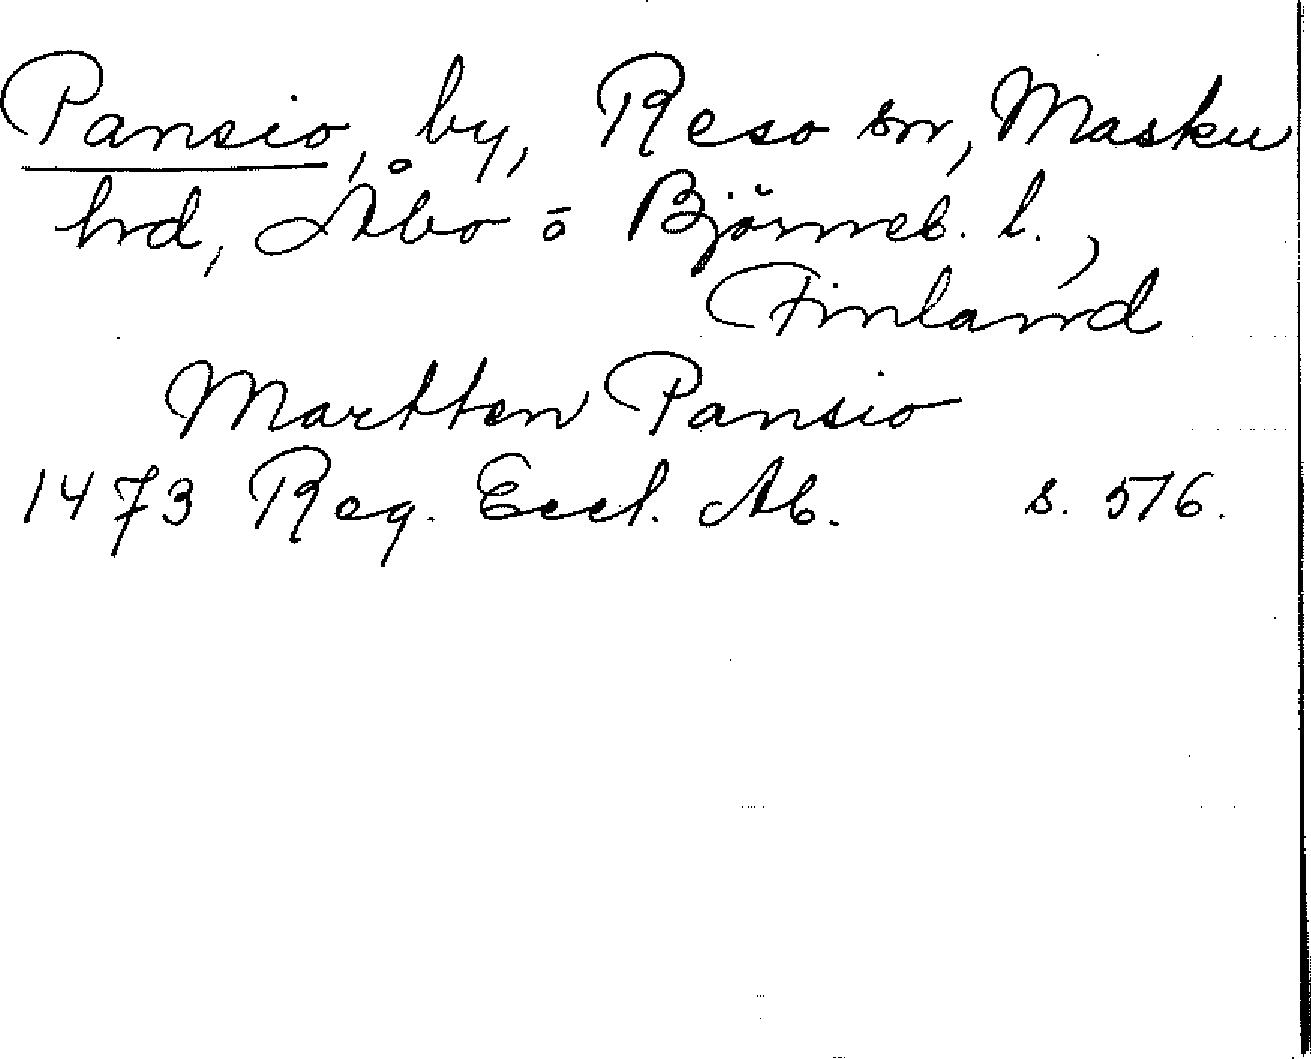 Pansio, by, Reso sn, Masku
hd, Åbo o Björneb. l.,
Finland
Martten Pansio
1473 Reg. Eccl. Ab. s. 576.